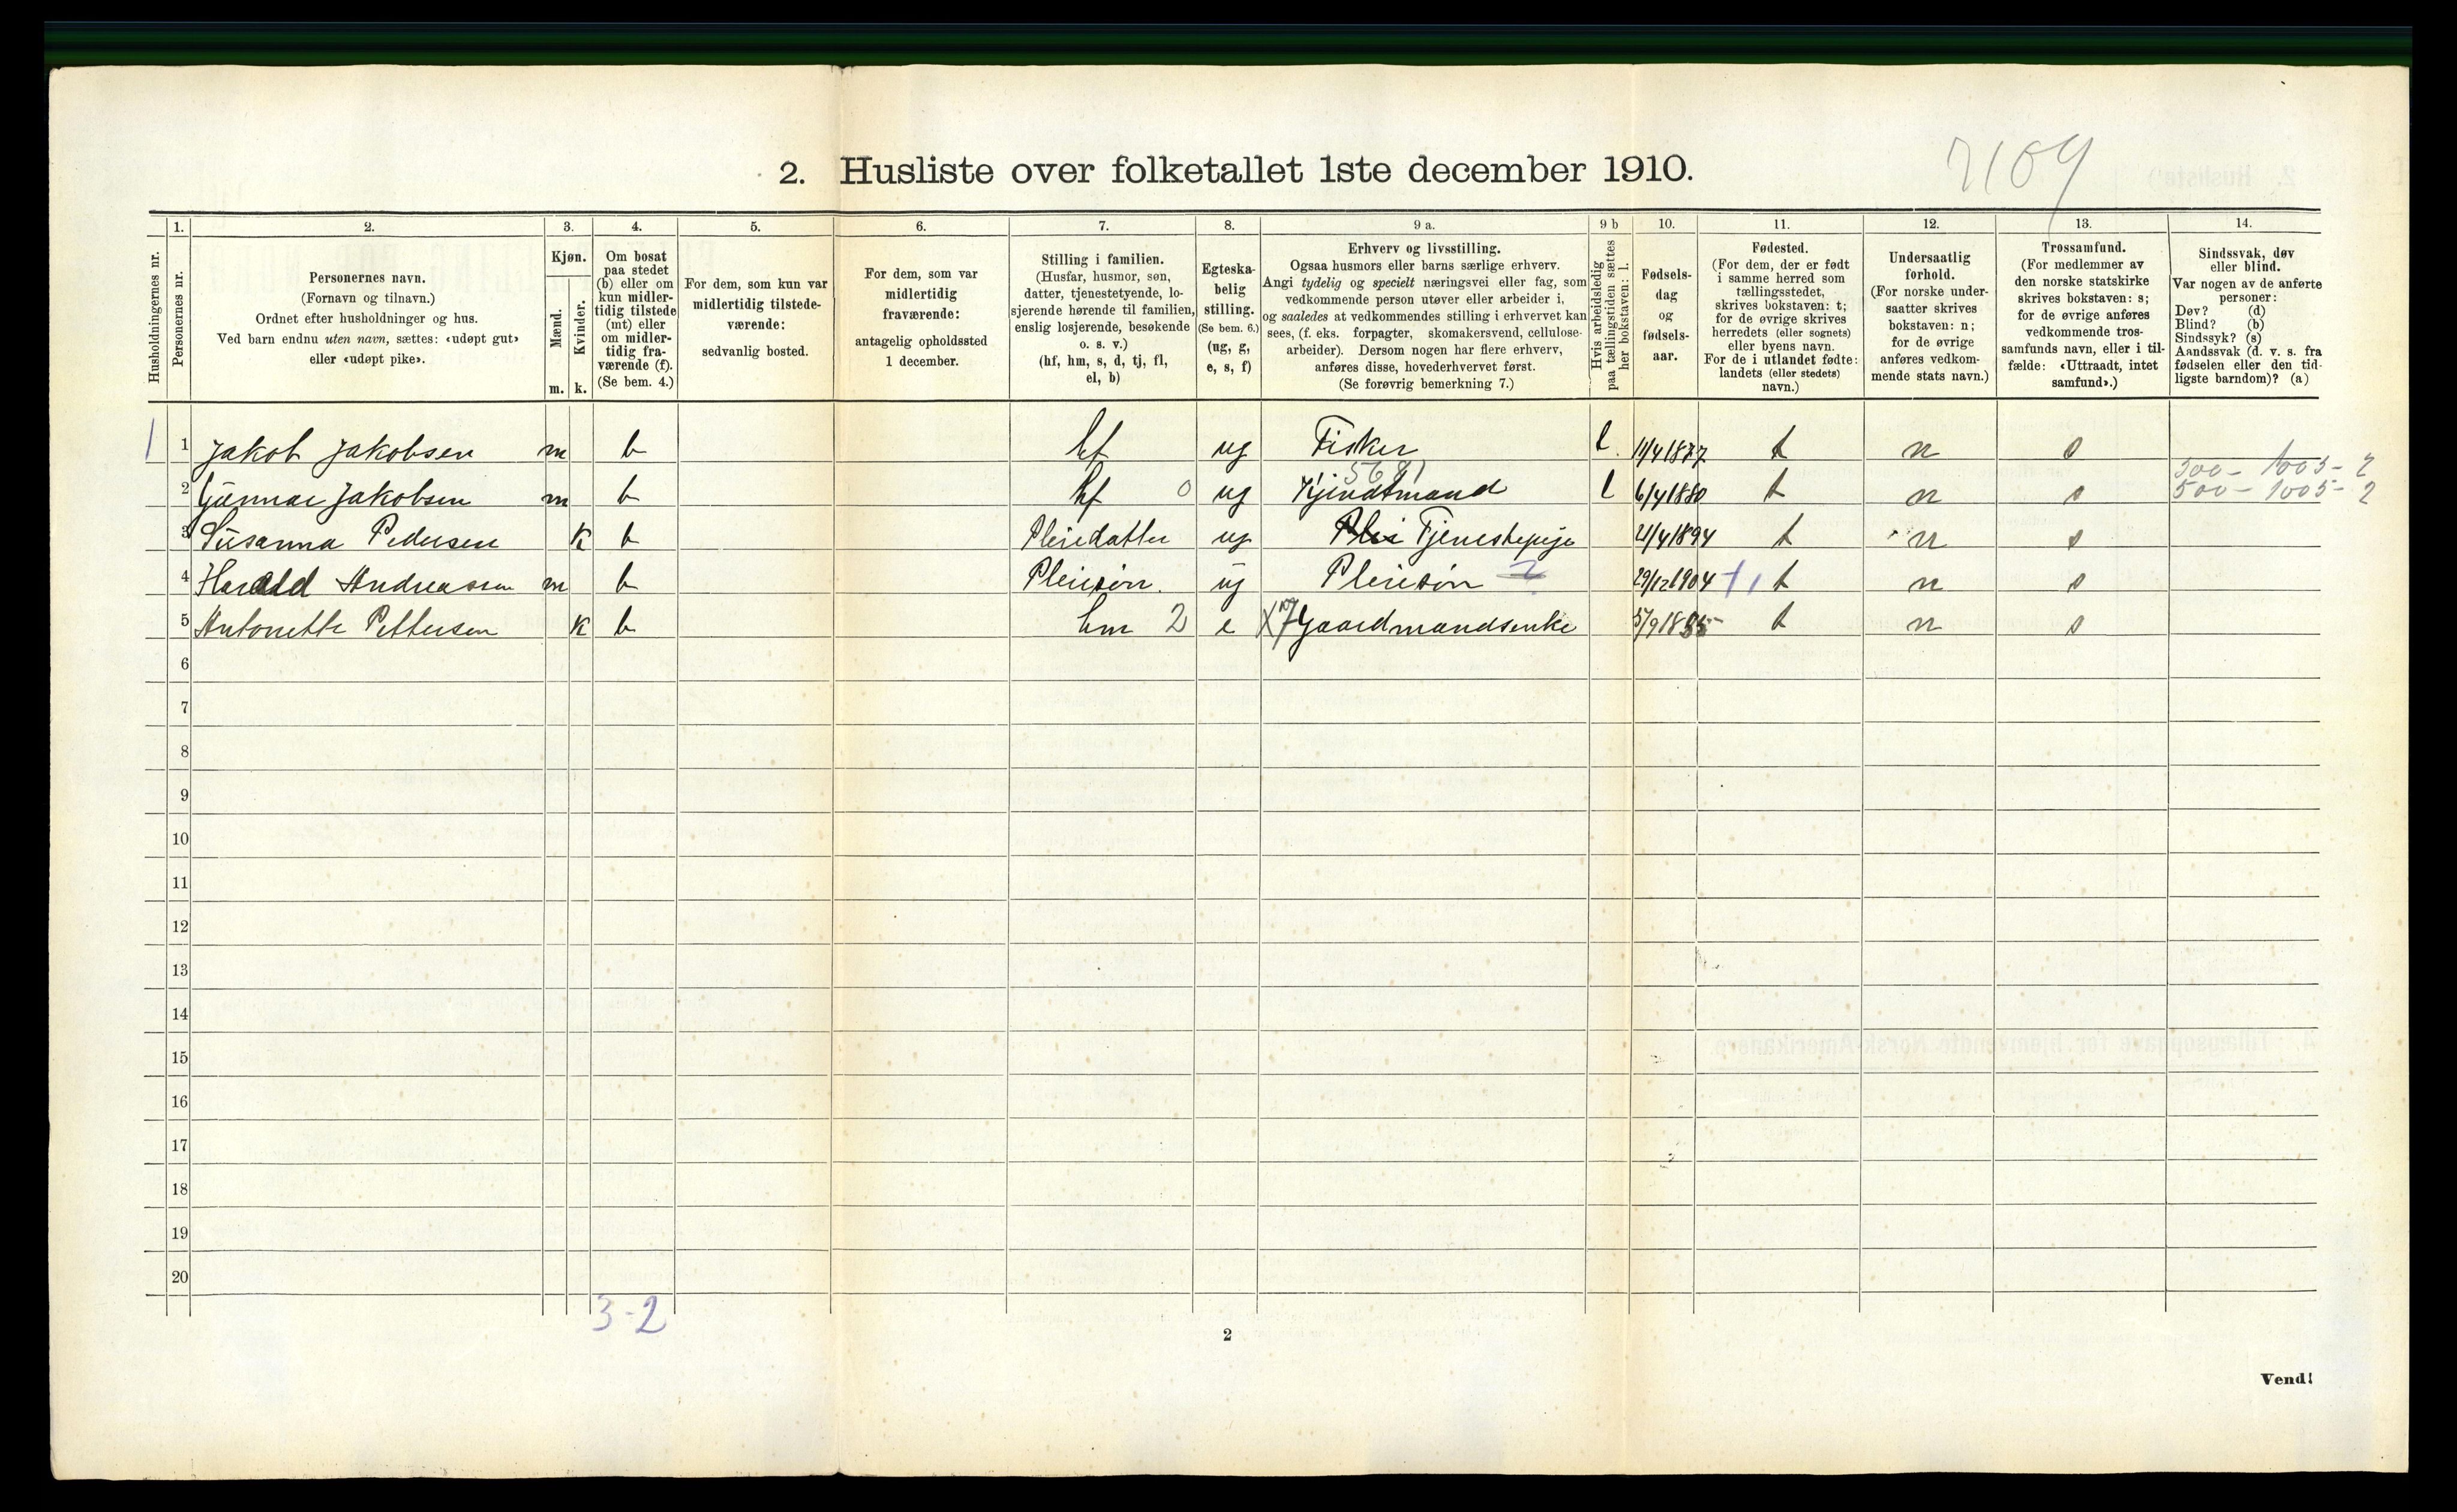 7109
2. Husliste over folketallet 1ste december 1910.
1. 2. 3. 4. 5. 6. 7. 8. 9 a. 9 b 10. 11. 12. 13. 14.
Husholdningernes nr.
Personernes nr.
Personernes navn.
(Fornavn og tilnavn.)
Ordnet efter husholdninger og hus.
Ved barn endnu uten navn, sættes: «udøpt gut»
eller «udøpt pike».
Kjøn.
Mænd.
Kvinder.
m. k.
Om bosat
paa stedet
(b) eller om
kun midler-
tidig tilstede
(mt) eller
om midler-
tidig fra-
værende (f).
(Se bem. 4.)
For dem, som kun var
midlertidig tilstede-
værende:
sedvanlig bosted.
For dem, som var
midlertidig
fraværende:
antagelig opholdssted
1 december.
Stilling i familien.
(Husfar, husmor, søn,
datter, tjenestetyende, lo-
sjerende hørende til familien,
enslig losjerende, besøkende
o. s. v.)
(hf, hm, s, d, tj, fl,
el, b)
Egteska-
belig
stilling.
(Se bem. 6.)
(ug, g,
e, s, f)
Erhverv og livsstilling.
Ogsaa husmors eller barns særlige erhverv.
Angi tydelig og specielt næringsvei eller fag, som
vedkommende person utøver eller arbeider i,
og saaledes at vedkommendes stilling i erhvervet kan
sees, (f. eks. forpagter, skomakersvend, cellulose-
arbeider). Dersom nogen har flere erhverv,
anføres disse, hovederhvervet først.
(Se forøvrig bemerkning 7.)
Hvis arbeidsledig
paa tællingstiden sættes
her bokstaven: l.
Fødsels-
dag
og
fødsels-
aar.
Fødested.
(For dem, der er født
i samme herred som
tællingsstedet,
skrives bokstaven: t;
for de øvrige skrives
herredets (eller sognets)
eller byens navn.
For de i utlandet fødte:
landets (eller stedets)
navn.)
Undersaatlig
forhold.
(For norske under-
saatter skrives
bokstaven: n;
for de øvrige
anføres vedkom-
mende stats navn.)
Trossamfund.
(For medlemmer av
den norske statskirke
skrives bokstaven: s;
for de øvrige anføres
vedkommende tros-
samfunds navn, eller i til-
fælde: «Uttraadt, intet
samfund».)
Sindssvak, døv
eller blind.
Var nogen av de anførte
personer:
Døv? (d)
Blind? (b)
Sindssyk? (s)
Aandssvak (d. v. s. fra
fødselen eller den tid-
ligste barndom)? (a)
1 1 Jakob Jakobsen m b hf ug Fisker l. 11/4 1877 t n s 500 - 1005 - 2
5681
2 Gunnar Jakobsen m b hf 0 ug Kjendtmand l 6/4 1880 t n s 500 - 1005 - 2
3 Susanna Pedersen k b Pleiedatter ug Tjenestepige 21/4 1894 t n s
4 Harald Andreassen m b Pleiesøn. ug Pleiesøn 29/12 1904 t n s
5 Antonette Pettersen k b hm 2 e X7 Gaardmandsenke 5/9 1855 t n s
6
7
8
9
10
11
12
13
14
15
16
17
18
19
20
3-2
2
Vend!